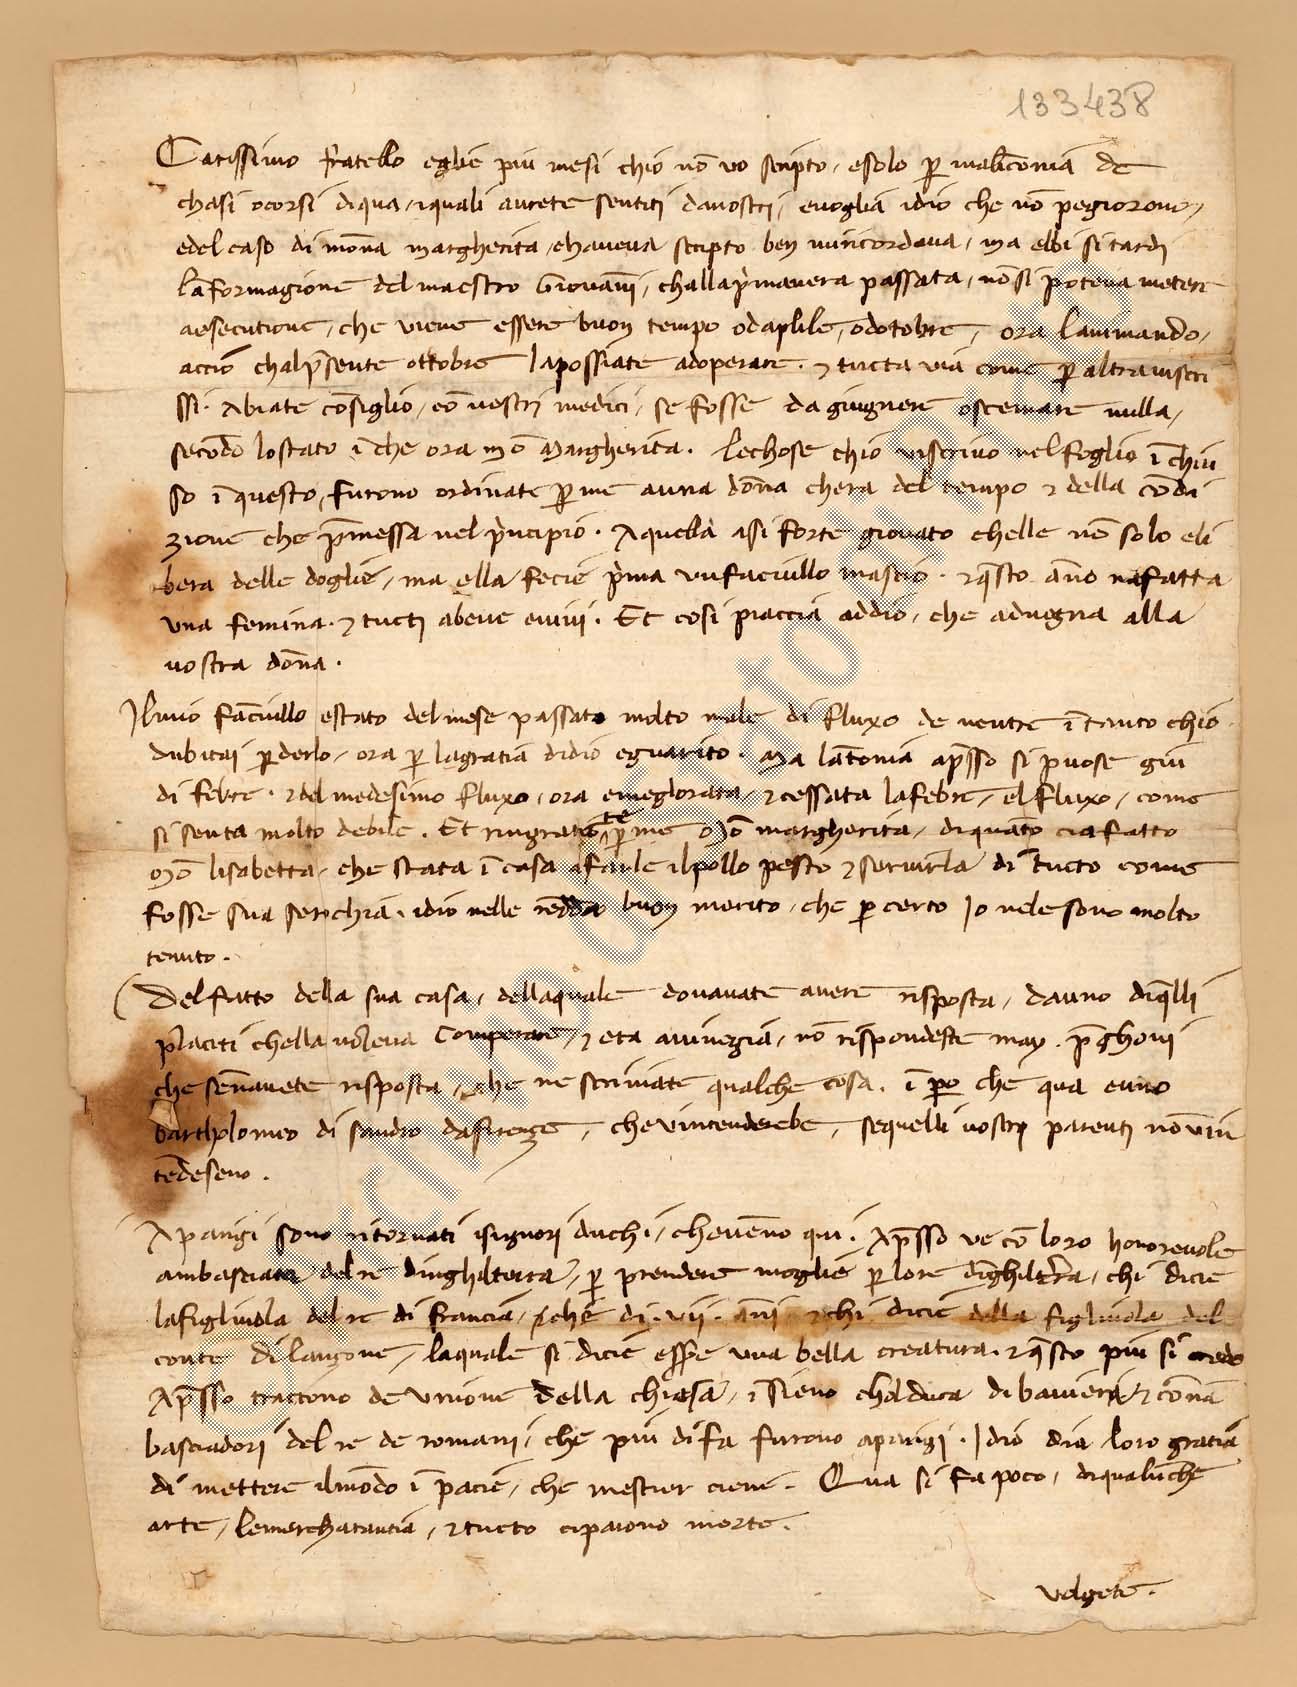 133438
Carissimo fratello eglie più mesi chio nō vo scripto, e solo p̄ malīconia de
chasi ocorsi diqua, iquali avrete sentiti davostri, evoglia idio che nō pegiorono,
edel caso di mōna margherita, chaveva scripto ben miricordava, ma ebbi sitardi
lāformagione del maestro Giovāni, challap̄mavera passata, nōsi poteva metere
aesecutione, che viene essere buon tempo odaplile, odotobre, ora lavimando,
acciò chalp̄sente ottobre lapossiate adoperare. & tuctavia come p̄ altraviscri
ssi. Abiate cōsiglio, cō vostri medici, se fosse da giugnere oscemare nulla,
secōdo lostato ī che ora mō Margherita. Lechose chio viscrivo nel foglio īchiu
so ī questo, furono ordinate p̄ me auna dōna chera del tempo & della cōdi
zione che p̄messa nel p̄ncipio. Aquella asi forte giovato chelle nō solo eli
bera delle doglie, ma ella fecie p̄ma unfaciullo mascio. & q̄sto āno nafatta
una femina. & tucti abene evivi. Et cosi piaccia addio, che advegna alla
vostra dōna.
Ilmio fāciullo estato delmese passato molto male di fluxo de ventre ītanto chio
dubitai p̄derlo, ora p̄ lagratia didio eguarito. Ma lātonia ap̄sso si puose giu
di febre. & del medesimo fluxo, ora emeglorata, & cessata lafebre, elfluxo, come
si senta molto debile. Et ringratiate p̄ me Mō margherita, diquāto ciafatto
Mō lisabetta, che stata ī casa afarle ilpollo pesto & servirla di tucto come
fosse sua serochia. idio nelle rēda buon merito, che p̄ certo Io nele sono molto
tenuto.
Delfatto della sua casa, dellaquale dovavate avere risposta, dauno diq̄lli
placiti chella voleva comperare, & era avinegia, nō rispondeste may. p̄ghovi
che senavete risposta, che ne scriviate qualche cosa. ī p̄o che qua euno
bartholomeo di sandro dafirenze, chevintenderebe, sequelli vostri parenti nō vin
tēdeseno.
A parigi sono ritornati isignori duchi, chevēno qui. Ap̄sso ve cō loro honorevole
ambasciata del re dinghilterra, p̄ prendere moglie p̄ lo re dīghilterra, chi dicie
lafigliuola del re di francia, che di .vij. āni & chi dicie della figliuola del
conte di langone, laquale si dicie essere una bella creatura. & q̄sto più si credo
Ap̄sso tractono de unione della chiesa, īsieno cholduca di baviera, & cōnā
basciadori del re de romani, che più di fa furono aparigi. Idio dia loro gratia
di mettere ilmōdo ī pacie, che mestier ciene. Qua si fa poco, diqualūche
arte, lemerchatantia, & tucto cipaiono morte.
volgete.